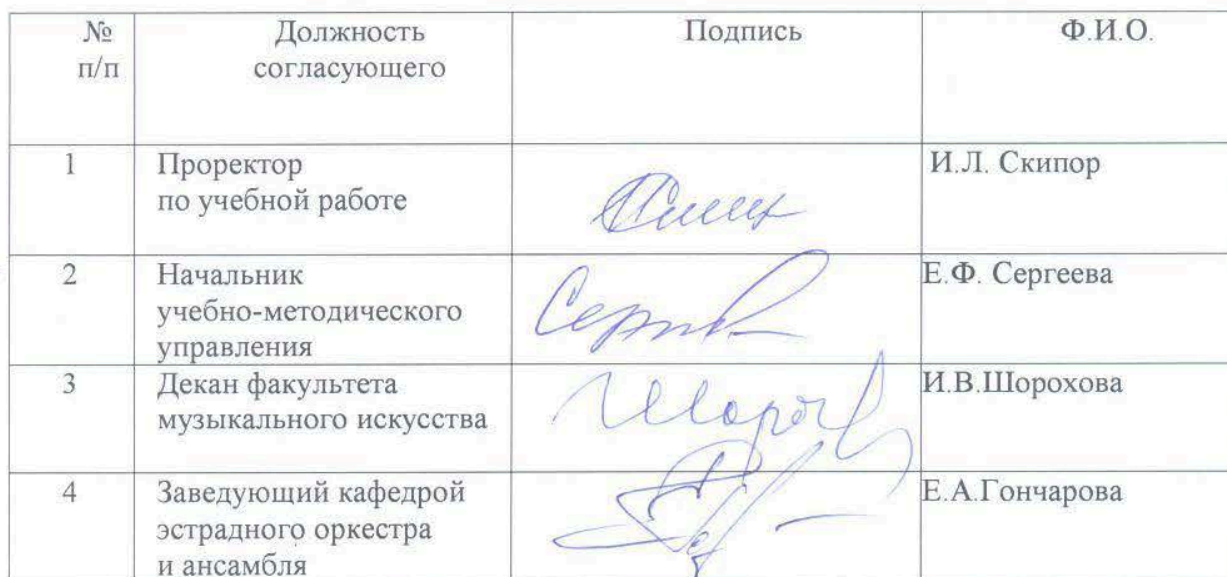 № п/п Должность согласующего Подпись Ф.И.О.
1 Проректор по учебной работе И.Л. Скипор
2 Начальник учебно-методического управления Е.Ф. Сергеева
3 Декан факультета музыкального искусства И.В.Шорохова
4 Заведующий кафедрой эстрадного оркестра и ансамбля Е.А.Гончарова